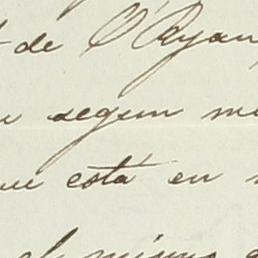 de O'Ryan
segun
que está en
el mismo